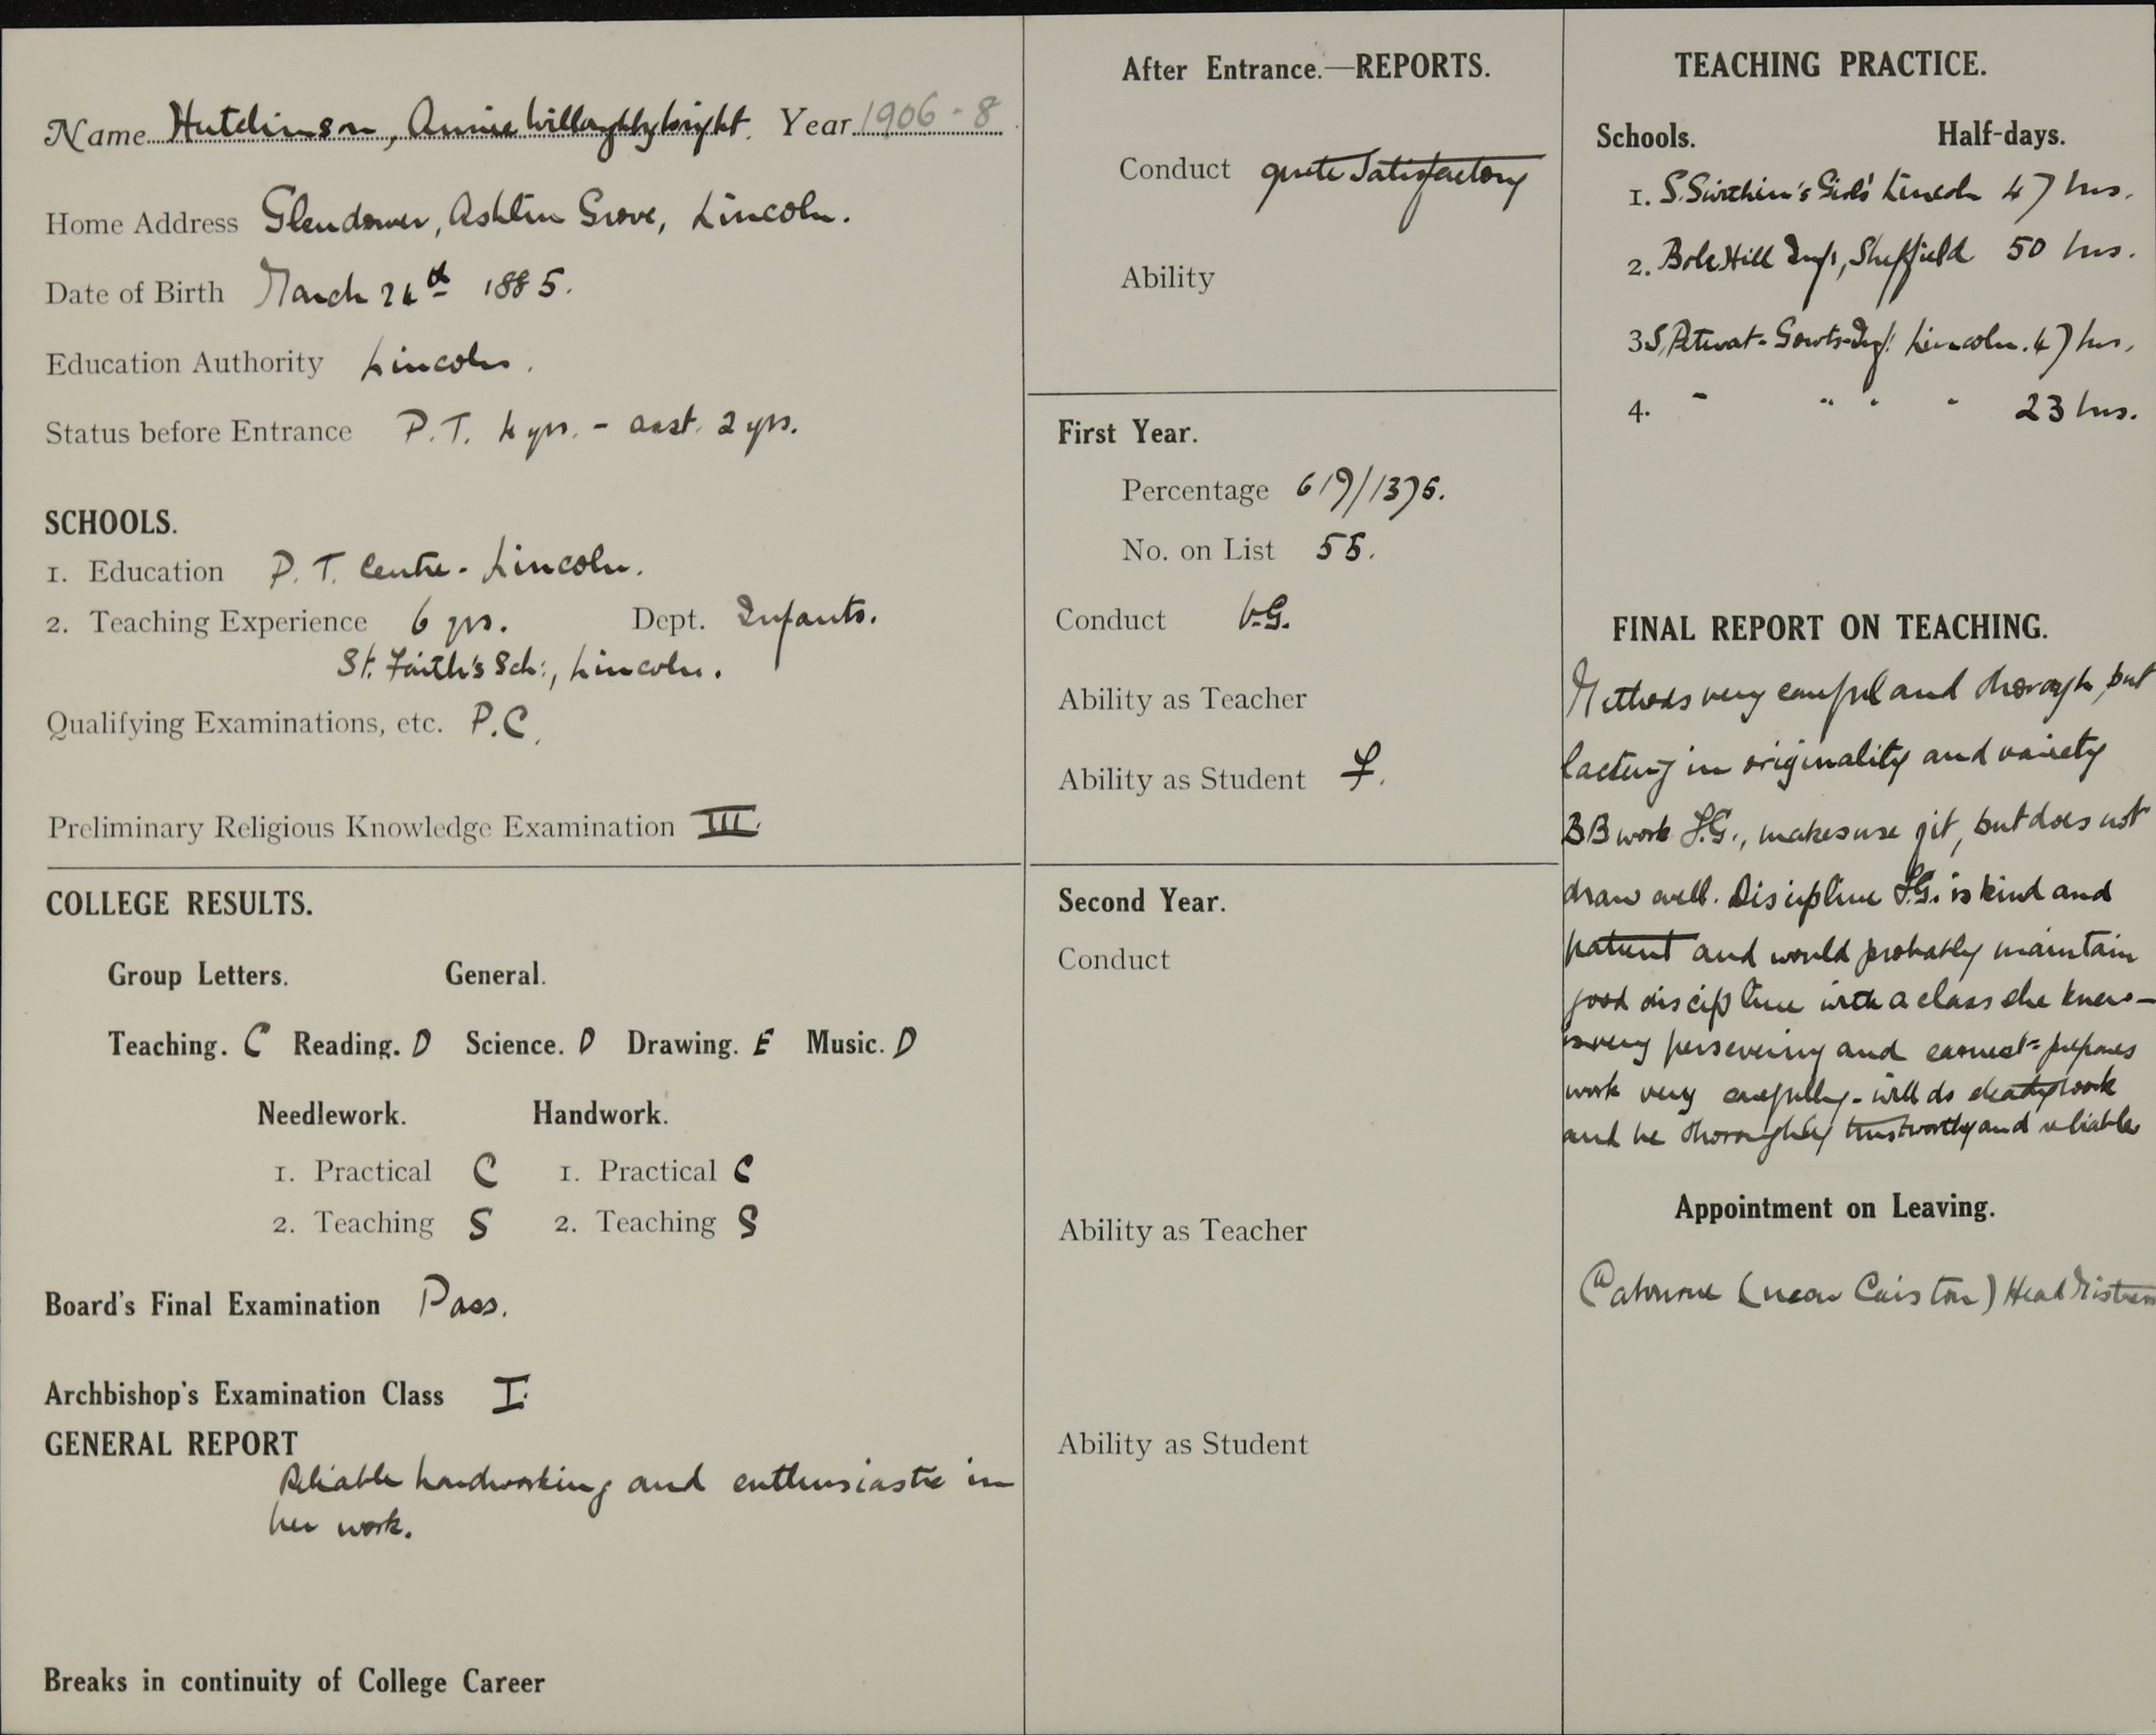 Name Hutchinson, Annie Willoughby bright. Year 1906-8
Home Address Glendower, Ashlin Grove, Lincoln.
Date of Birth March 24th 1885.
Education Authority Lincoln.
Status before Entrance P.T. 4 yrs. - asst. 2 yrs.
SCHOOLS.
1. Education P.T. Centre - Lincoln.
2. Teaching Experience 6 yrs. Dept. Infants.
St. Faith's Sch:, Lincoln.
Qualifying Examinations, etc. P.C.
Preliminary Religious Knowledge Examination III.
COLLEGE RESULTS.
Group Letters. General.
Teaching. C Reading. D Science. D Drawing. E Music. D
Needlework. Handwork.
1. Practical C 1. Practical C
2. Teaching S 2. Teaching S
Board's Final Examination Pass.
Archbishop's Examination Class I.
GENERAL REPORT
Reliable hardworking and enthusiastic in
her work.
Breaks in continuity of College Career
After Entrance.—REPORTS.
Conduct quite satisfactory
Ability
First Year.
Percentage 617/1375.
No. on List 55.
Conduct V.G.
Ability as Teacher
Ability as Student F.
Second Year.
Conduct
Ability as Teacher
Ability as Student
TEACHING PRACTICE.
Schools. Half-days.
1. S. Swithin's Girls' Lincoln 47 hrs.
2. Bole Hill Infs, Sheffield 50 hrs.
3 S. Peter at-Gowts-Inf: Lincoln. 47 hrs.
4. " " " " 23 hrs.
FINAL REPORT ON TEACHING.
Methods very careful and thorough, but
lacking in originality and variety
BB work F.G., makes use of it, but does not
draw well. Discipline F.G. is kind and
patient and would probably maintain
good discipline with a class she knew—
is very persevering and earnest - prepares
work very carefully - will do steady work
and be thoroughly trustworthy and reliable
Appointment on Leaving.
Cabourne (near Caistor) Head Mistress